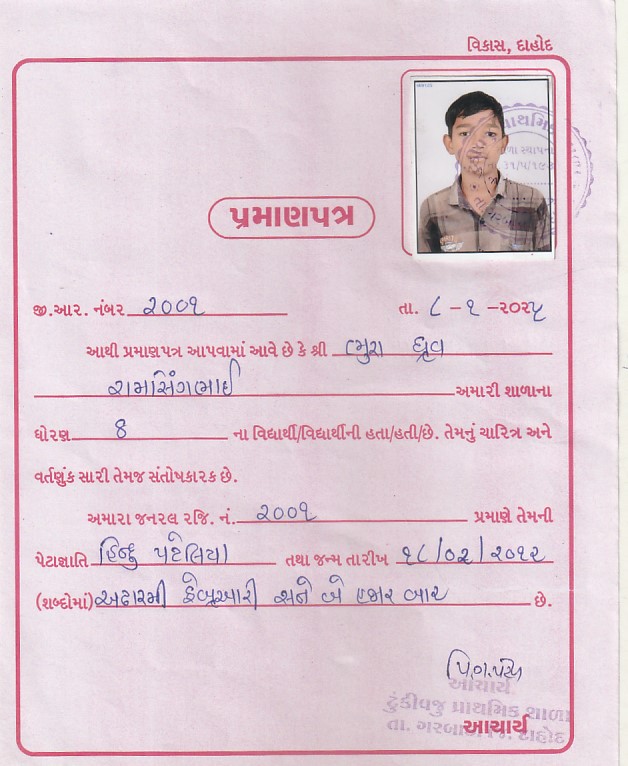 વિકાસ, દાહોદ
પ્રાથમિક
૩૧/૫/૧૯
પ્રમાણપત્ર
જી.આર. નંબર ૨૦૦૧ તા. ૮ - ૧ -૨૦૨૫
આથી પ્રમાણપત્ર આપવામાં આવે છે કે શ્રી ભુરા ધ્રુવ
રામસિંગભાઈ અમારી શાળાના
ધોરણ 8 ના વિદ્યાર્થી/વિદ્યાર્થીની હતા/હતી/છે. તેમનું ચારિત્ર અને
વર્તણુંક સારી તેમજ સંતોષકારક છે.
અમારા જનરલ રજિ. નં. ૨૦૦૧ પ્રમાણે તેમની
પેટાજ્ઞાતિ હિન્દુ પટેલિયા તથા જન્મ તારીખ ૧૮/૦૨/૨૦૧૨
(શબ્દોમાં) અઢારમી ફેબ્રુઆરી સને બે હજાર બાર છે.
આચાર્ય
ટુંકીવજુ પ્રાથમિક શાળા
આચાર્ય
તા. ગરબાડા જિ. દાહોદ